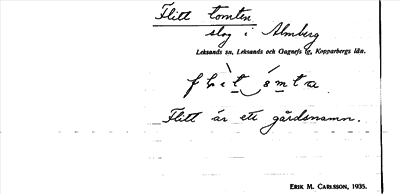 Flitt tomten
slog i Almberg
Leksands sn, Leksands och Gagnefs tg, Kopparbergs län.
Flitt är ett gårdsnamn.
ERIK M. CARLSSON, 1935.